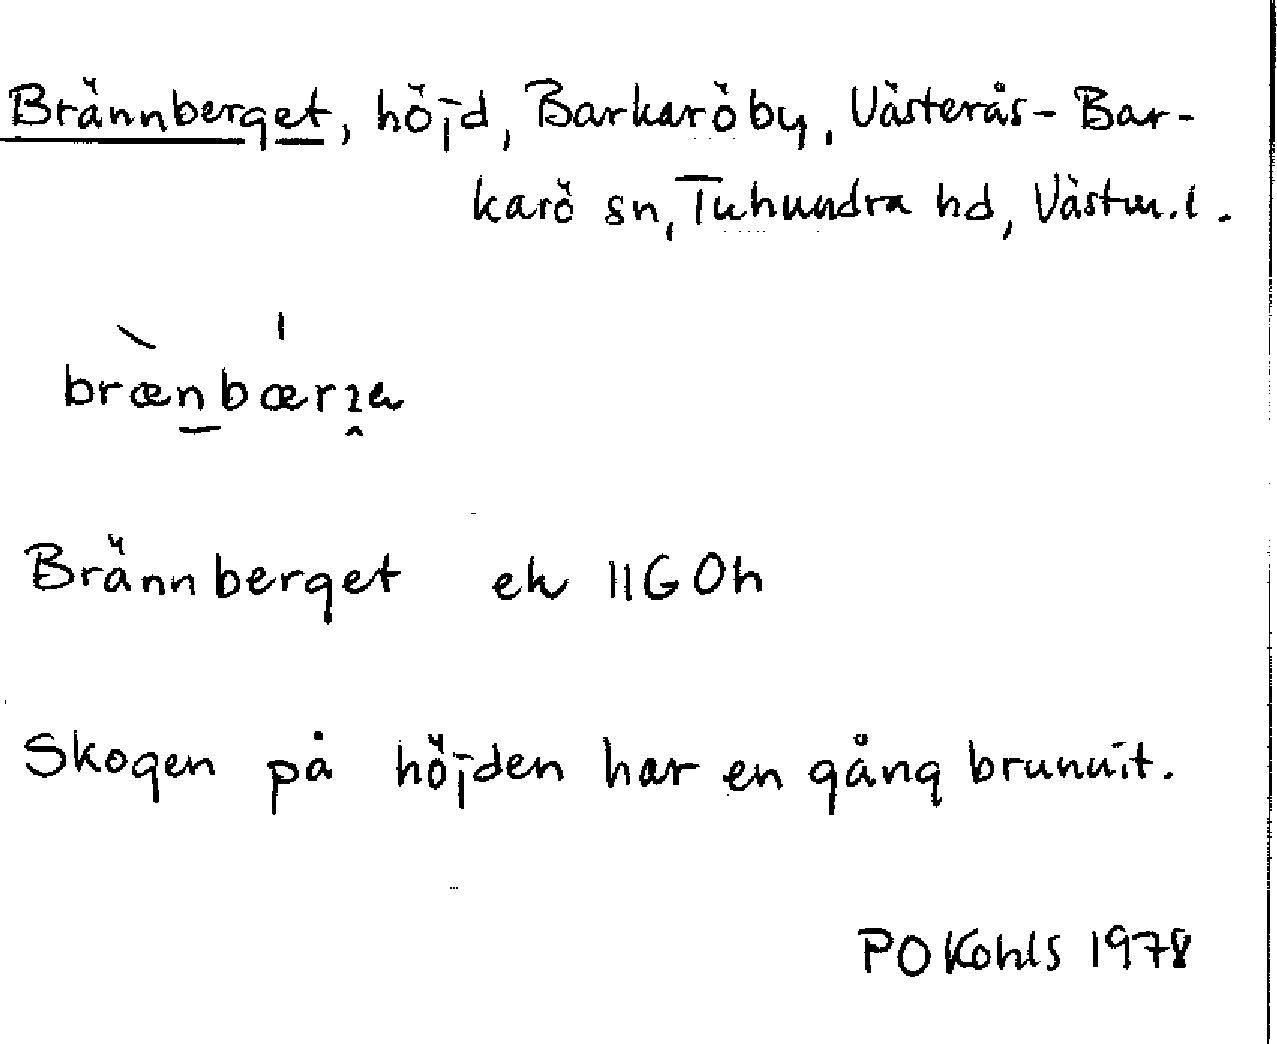 Brännberget, höjd, Barkaröby, Västerås-Bar-
karö sn, Tuhundra hd, Västm.l.
Brännberget ek 11G0h
Skogen på höjden har en gång brunnit.
PO Kohls 1978